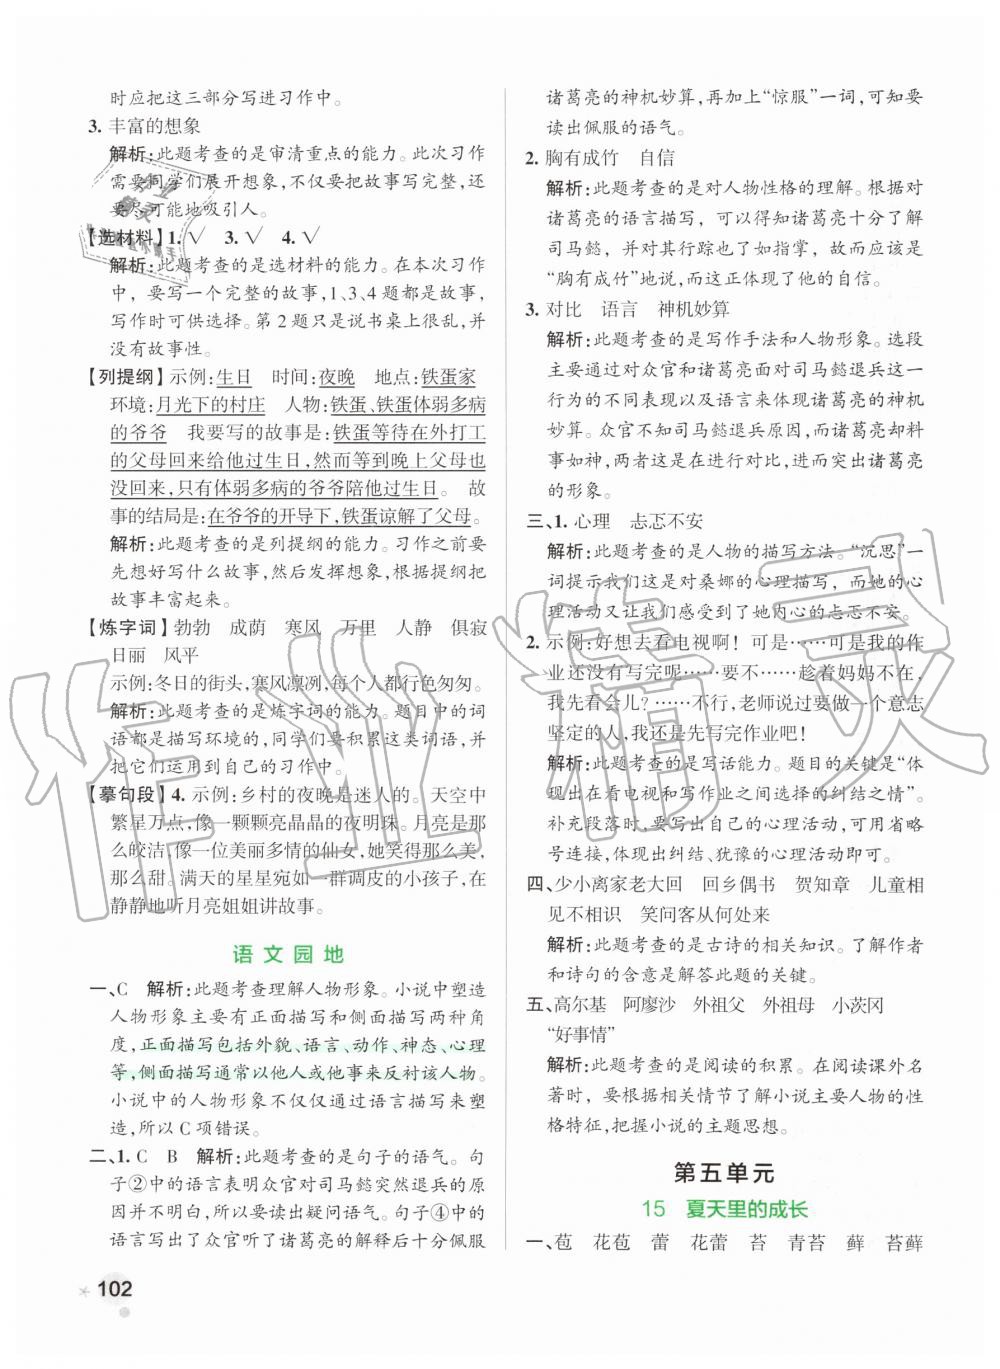 时应把这三部分写进习作中。
3. 丰富的想象
解析:此题考查的是审清重点的能力。此次习作
需要同学们展开想象,不仅要把故事写完整,还
要尽可能地吸引人。
【选材料】1.√ 3.√ 4.√
解析:此题考查的是选材料的能力。在本次习作
中,要写一个完整的故事,1、3、4题都是故事,
写作时可供选择。第2题只是说书桌上很乱,并
没有故事性。
【列提纲】示例:生日 时间:夜晚 地点:铁蛋家
环境:月光下的村庄 人物:铁蛋、铁蛋体弱多病
的爷爷 我要写的故事是:铁蛋等待在外打工
的父母回来给他过生日,然而等到晚上父母也
没回来,只有体弱多病的爷爷陪他过生日。 故
事的结局是:在爷爷的开导下,铁蛋谅解了父母。
解析:此题考查的是列提纲的能力。习作之前要
先想好写什么故事,然后发挥想象,根据提纲把
故事丰富起来。
【炼字词】勃勃 成荫 寒风 万里 人静 俱寂
日丽 风平
示例:冬日的街头,寒风凛冽,每个人都行色匆匆。
解析:此题考查的是炼字词的能力。题目中的词
语都是描写环境的,同学们要积累这类词语,并
把它们运用到自己的习作中。
【摹句段】4. 示例:乡村的夜晚是迷人的。天空中
繁星万点,像一颗颗亮晶晶的夜明珠。月亮是那
么皎洁,像一位美丽多情的仙女,她笑得那么美,
那么甜。满天的星星宛如一群调皮的小孩子,在
静静地听月亮姐姐讲故事。
语文园地
一、C 解析:此题考查理解人物形象。小说中塑造
人物形象主要有正面描写和侧面描写两种角
度,正面描写包括外貌、语言、动作、神态、心理
等,侧面描写通常以他人或他事来反衬该人物。
小说中的人物形象不仅仅通过语言描写来塑
造,所以C项错误。
二、1. C B 解析:此题考查的是句子的语气。句
子②中的语言表明众官对司马懿突然退兵的原
因并不明白,所以要读出疑问语气。句子④中的
语言写出了众官听了诸葛亮的解释后十分佩服
102
诸葛亮的神机妙算,再加上“惊服”一词,可知要
读出佩服的语气。
2. 胸有成竹 自信
解析:此题考查的是对人物性格的理解。根据对
诸葛亮的语言描写,可以得知诸葛亮十分了解
司马懿,并对其行踪也了如指掌,故而应该是
“胸有成竹”地说,而这正体现了他的自信。
3. 对比 语言 神机妙算
解析:此题考查的是写作手法和人物形象。选段
主要通过对众官和诸葛亮面对司马懿退兵这一
行为的不同表现以及语言来体现诸葛亮的神机
妙算。众官不知司马懿退兵原因,而诸葛亮却料
事如神,两者这是在进行对比,进而突出诸葛亮
的形象。
三、1. 心理 忐忑不安
解析:此题考查的是人物的描写方法。“沉思”一
词提示我们这是对桑娜的心理描写,而她的心
理活动又让我们感受到了她内心的忐忑不安。
2. 示例:好想去看电视啊!可是……可是我的作
业还没有写完呢……要不……趁着妈妈不在,
我先看会儿?……不行,老师说过要做一个意志
坚定的人,我还是先写完作业吧!
解析:此题考查的是写话能力。题目的关键是“体
现出在看电视和写作业之间选择的纠结之情”。
补充段落时,要写出自己的心理活动,可用省略
号连接,体现出纠结、犹豫的心理活动即可。
四、少小离家老大回 回乡偶书 贺知章 儿童相
见不相识 笑问客从何处来
解析:此题考查的是古诗的相关知识。了解作者
和诗句的含意是解答此题的关键。
五、高尔基 阿廖沙 外祖父 外祖母 小茨冈
“好事情”
解析:此题考查的是阅读的积累。在阅读课外名
著时,要根据相关情节了解小说主要人物的性
格特征,把握小说的主题思想。
第五单元
15 夏天里的成长
一、苞 花苞 蕾 花蕾 苔 青苔 藓 苔藓
作业精灵